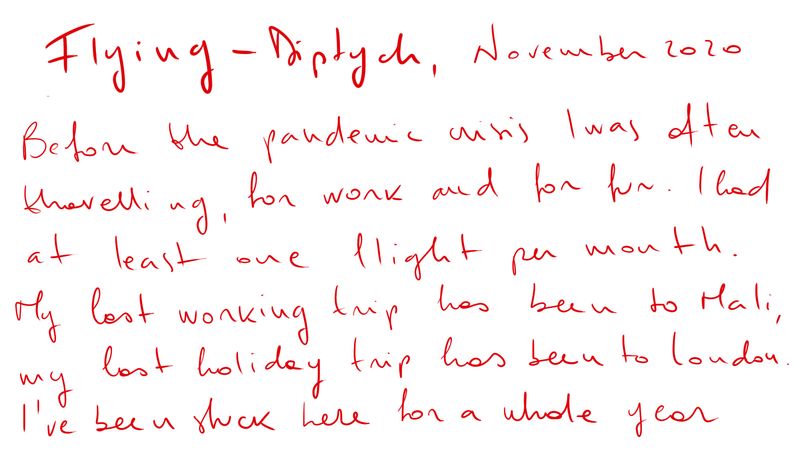 Flying - Diptych, November 2020
Before the pandemic crisis I was often
travelling, for work and for fun. I had
at least one flight per month.
My last working trip has been to Mali,
my last holiday trip has been to London.
I've been stuck here for a whole year